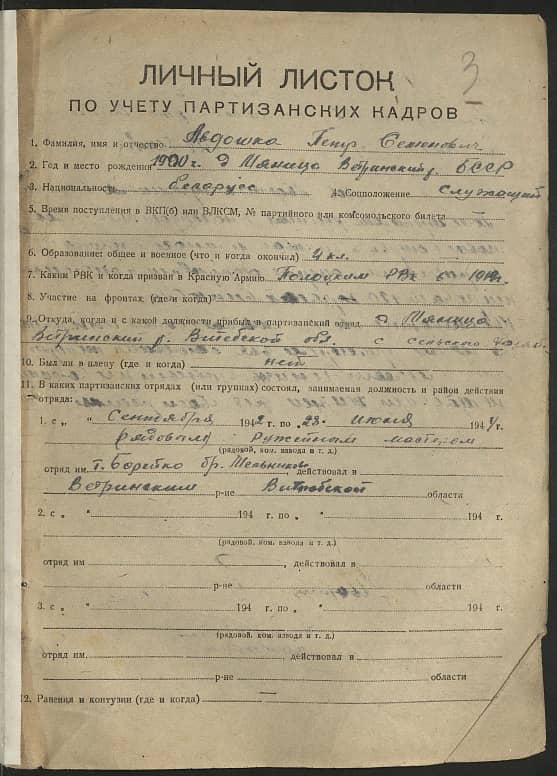 3
ЛИЧНЫЙ ЛИСТОК
ПО УЧЕТУ ПАРТИЗАНСКИХ КАДРОВ
1. Фамилия, имя и отчество Авдошка Петр Семенович
2. Год и место рождения 1900 г. д Тяница Ветринский р. БССР
3. Национальность беларусс 4. Соцположение служащий
5. Время поступления в ВКП(б) или ВЛКСМ, № партийного или комсомольского билета
6. Образование: общее и военное (что и когда окончил) 4 кл.
7. Каким РВК и когда призван в Красную Армию Полоцким РВК в 1919г.
8. Участие на фронтах (где и когда)
9. Откуда, когда и с какой должности прибыл в партизанский отряд д Тяница
Ветринский р. Витебской обл. с сельского
10. Был ли в плену (где и когда) нет
11. В каких партизанских отрядах (или группах) состоял, занимаемая должность и район действия
отряда:
1. с „ " Сентября 1942 г. по „28" июня 1944 г.
рядовым ружейным мастером
(рядовой, ком. взвода и т. д.)
отряд им. т. бр. Мельникова, действовал в
Ветринским р-не Витебской области
2. с „ " 194 г. по „ " 194 г.
(рядовой, ком. взвода и т. д.)
отряд им , действовал в
р-не области
3. с „ " 194 г. по „ " 194 г.
(рядовой, ком. взвода и т. д.)
отряд им. , действовал в
р-не области
12. Ранения и контузии (где и когда) —